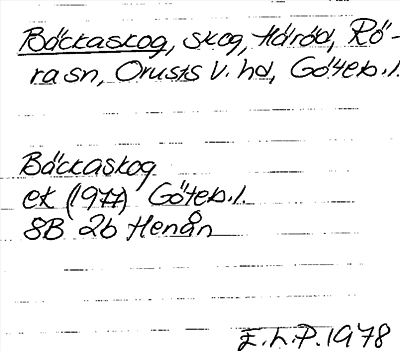 Bäckaskog, skog, Häröd, Rö-
ra sn, Orusts V. hd, Göteb. l.
Bäckaskog
ek (1977) Göteb. l.
8B 2b Henån
E.h.P. 1978